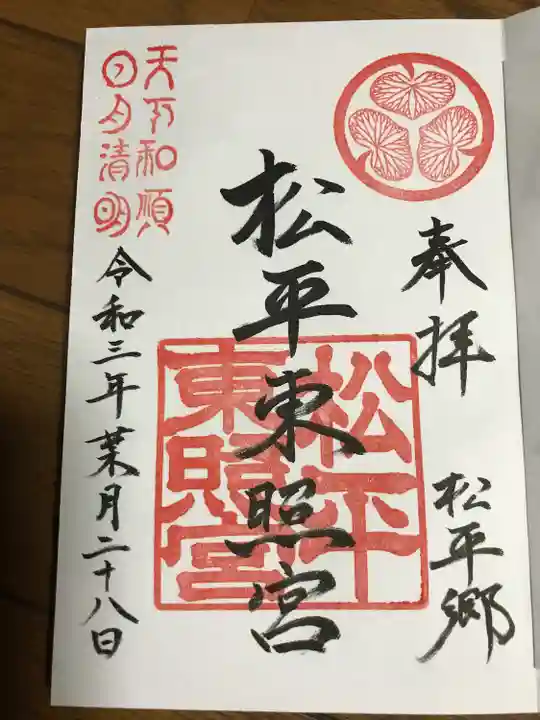 奉拝
松平郷
松平東照宮
松平
東照宮
天下和順
日月清明
令和三年葉月二十八日